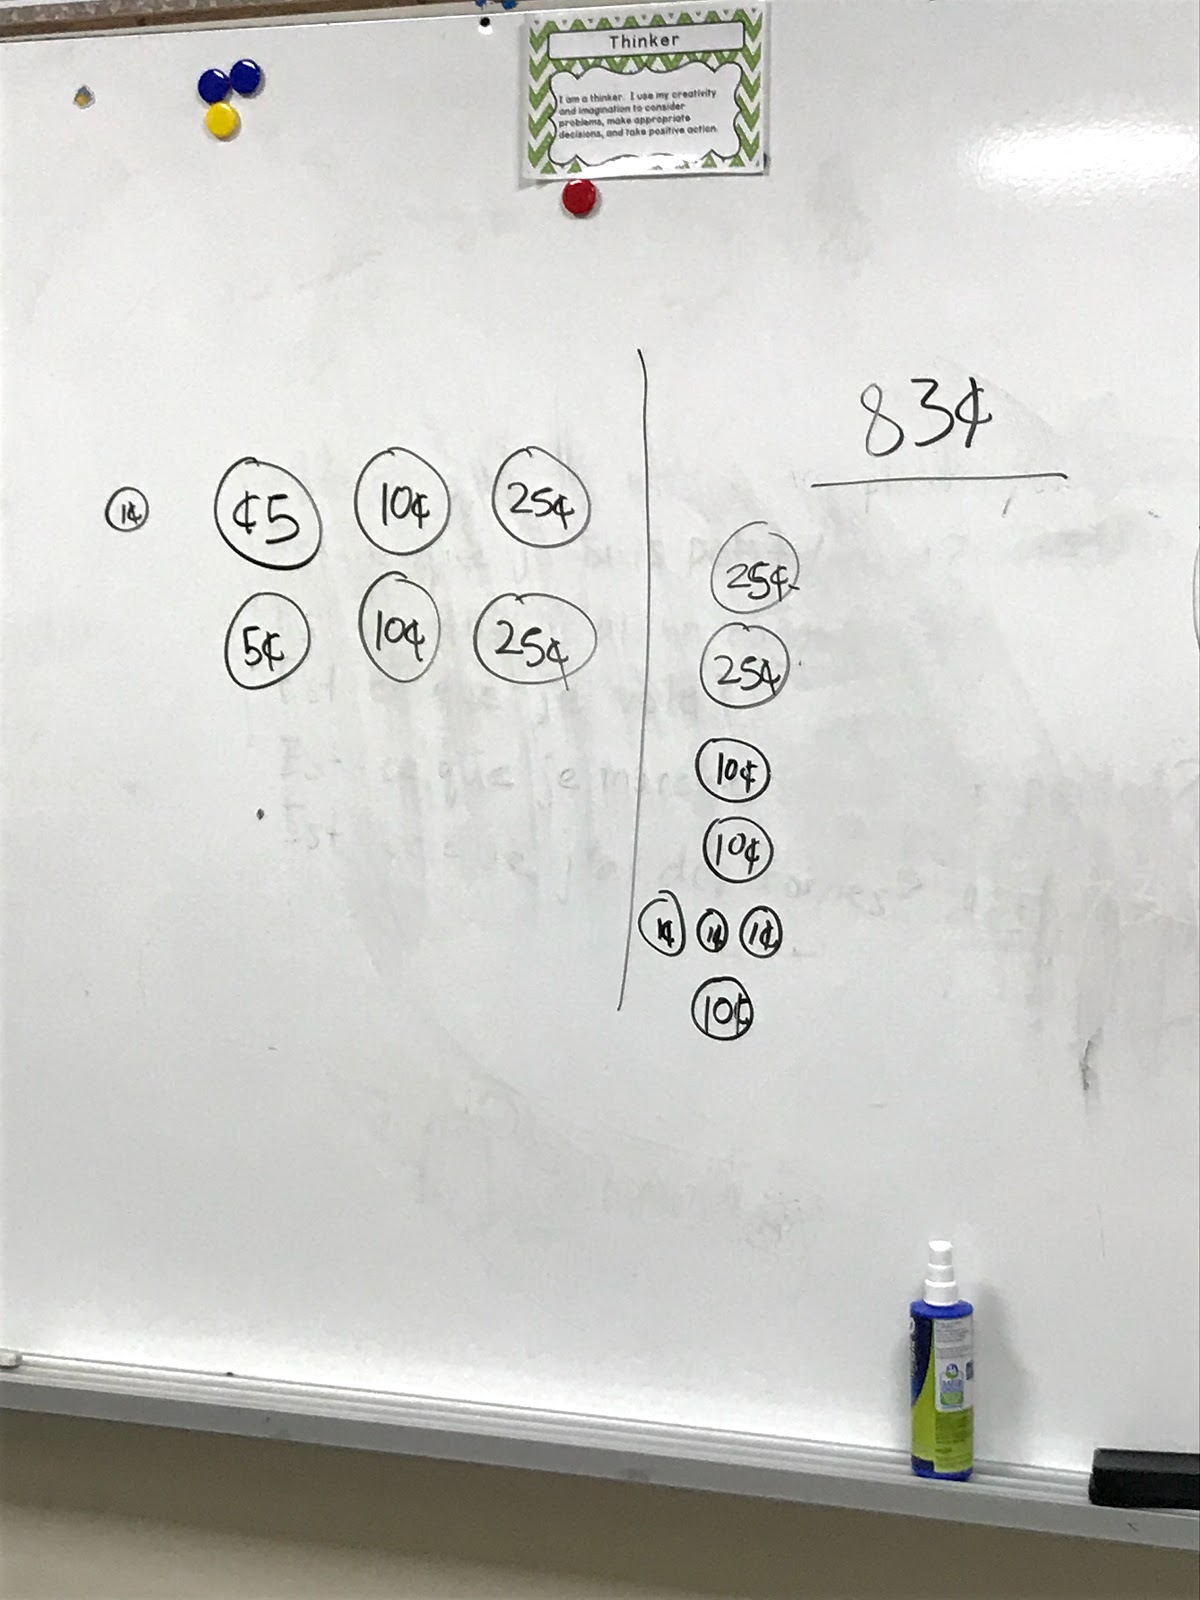 Thinker
I am a thinker. I use my creativity
and imagination to consider
problems, make appropriate
decisions, and take positive action.
1¢ ¢5 10¢ 25¢
5¢ 10¢ 25¢
83¢
25¢
25¢
10¢
10¢
1¢ 1¢ 1¢
10¢